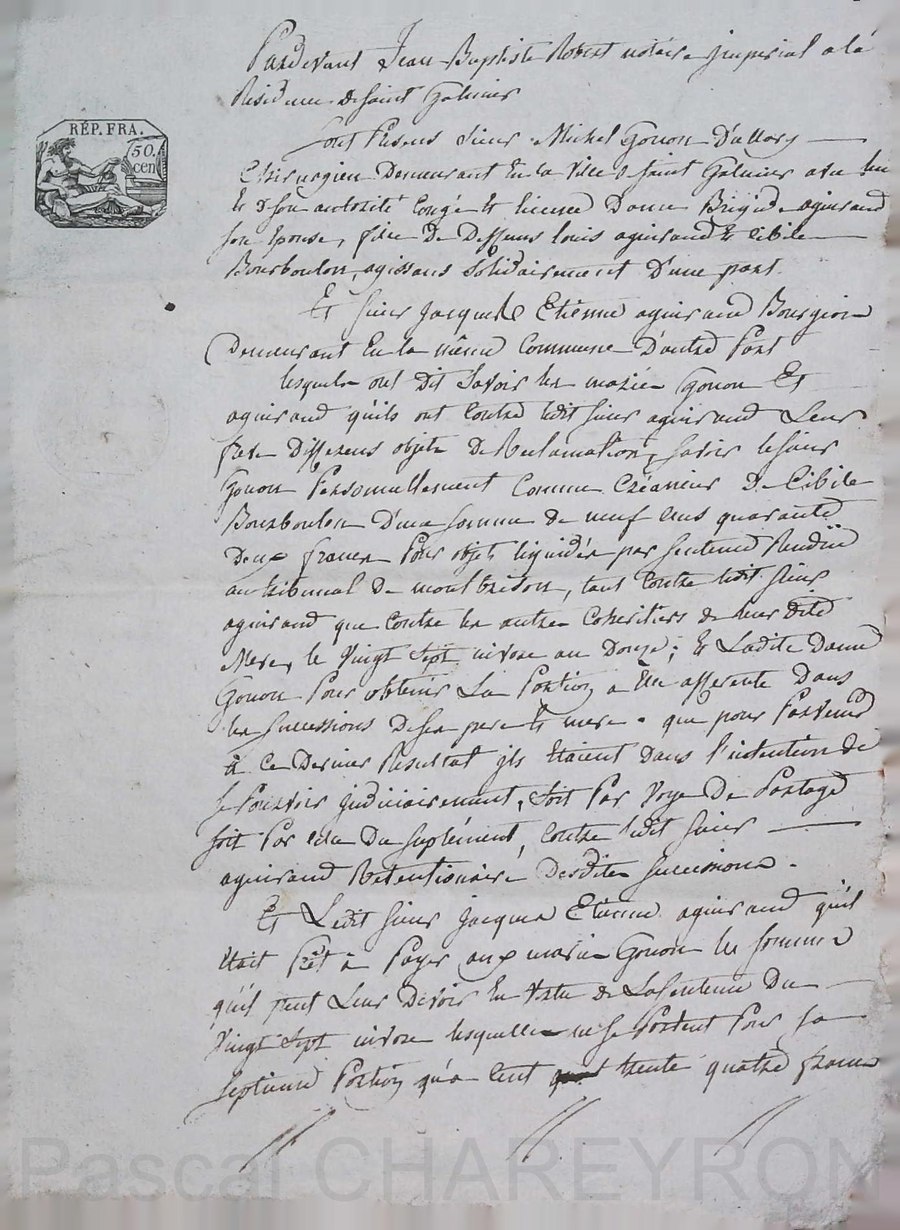 RÉP. FRA.
50.
cen
Pardevant Jean Baptiste Robert notaire Jmperial a la
Residence de Saint Galmier
sont Presens Sieur Michel Gonon D'allory
Chirurgien Demeurant En la Ville de Saint Galmier avec lui
& de Son autorité Congé & licence Dame Brigide aguiraud
son Epouse, fille De Deffuns louis aguiraud & Cibile
Bourboulon, agissans Solidairement D'une part.
Et Sieur Jacques Etienne aguiraud Bourgeois
Demeurant En la même Commune D'autre Part
lesquels ont Dit Savoir les mariés Gonon Et
aguiraud qu'ils ont Contre ledit Sieur aguiraud Leur
frere Differens objets De Reclamation, Savoir le Sieur
Gonon Personnellement Comme Créancier De Cibile
Bourboulon D'une Somme de neuf Cens quarante
Deux francs Pour objets liquidés par Sentence Rendüe
au tribunal De montbrison, tant Contre ledit Sieur
aguiraud que Contre les autres Coheritiers de leur dite
Mere, le Vingt Sept nivose an Douze; & Ladite Dame
Gonon Pour obtenir La Portion a Elle afferente Dans
les Successions De Ses pere & mere. que pour Parvenir
a Ce Dernier Resultat jls Etaient dans l'intention de
se Pourvoir judiciairement, Soit Par Voye De Partage
soit Par Celle Du Suplément, Contre ledit Sieur
aguiraud Retentionaire Desdites Successions.
Et Ledit Sieur Jacques Etienne aguiraud qu'il
Etait Prêt a Payer aux mariés Gonon les Sommes
qu'il peut Leur Devoir En Vertu de La Sentence Du
Vingt Sept nivose lesquelles ne Se Portent Pour Sa
Septieme Portion qu'a Cent trente quatre francs
Pascal CHAREYRON